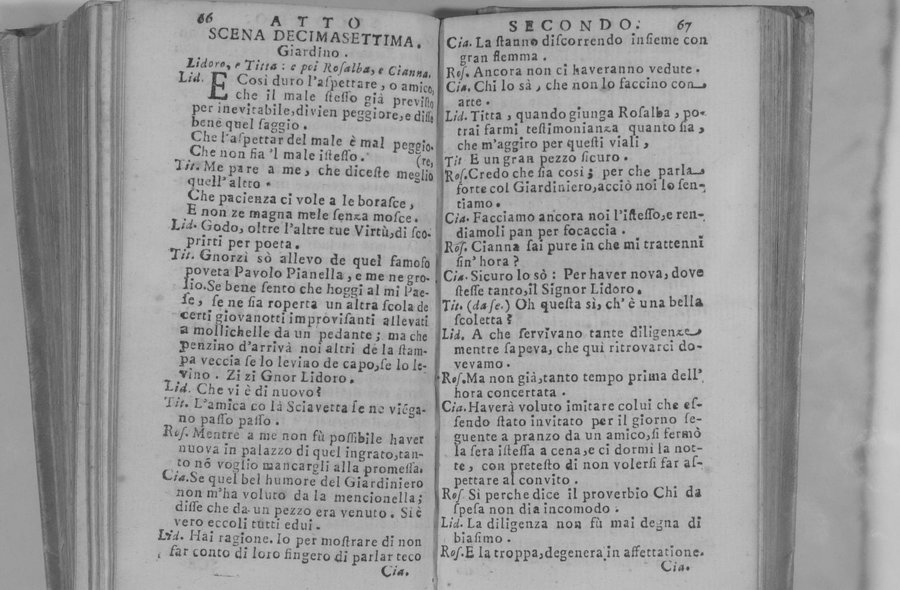 66 ATTO
SCENA DECIMASETTIMA.
Giardino.
Lidoro, e Titta: e poi Rosalba, e Cianna.
Lid. E Cosi duro l'aſpettare, o amico,
che il male ſteſſo già previſto
per inevitabile, divien peggiore, e diſſe
bene quel ſaggio.
Che l'aſpettar del male è mal peggio-
Che non ſia 'l male iſteſſo. (re,
Tit. Me pare a me, che diceſte meglio
quell' altro.
Che pacienza ci vole a le boraſce,
E non ze magna mele ſenza moſce.
Lid. Godo, oltre l'altre tue Virtù, di ſco-
prirti per poeta.
Tit. Gnorzi sò allevo de quel famoſo
poveta Pavolo Pianella, e me ne gro-
lio. Se bene ſento che hoggi al mi Pae-
ſe, ſe ne ſia roperta un altra ſcola de
certi giovanotti improviſanti allevati
a mollichelle da un pedante; ma che
penzino d'arrivà noi altri de la ſtam-
pa veccia ſe lo levino de capo, ſe lo le-
vino. Zi zi Gnor Lidoro.
Lid. Che vi è di nuovo?
Tit. L'amica co là Sciavetta ſe ne viéga-
no paſſo paſſo.
Roſ. Mentre a me non fù poſſibile haver
nuova in palazzo di quel ingrato, tan-
to nó voglio mancargli alla promeſſa.
Cia. Se quel bel humore del Giardiniero
non m'ha voluto da la mencionella;
diſſe che da un pezzo era venuto. Si è
vero eccoli tutti edui.
Lid. Hai ragione. Io per moſtrare di non
far conto di loro fingero di parlar teco
Cia.
SECONDO. 67
Cia. La ſtanno diſcorrendo inſieme con
gran flemma.
Roſ. Ancora non ci haveranno vedute.
Cia. Chi lo sà, che non lo faccino con
arte.
Lid. Titta, quando giunga Roſalba, po-
trai farmi teſtimonianza quanto ſia,
che m'aggiro per queſti viali,
Tit E un gran pezzo ſicuro.
Roſ. Credo che ſia cosi; per che parla
forte col Giardiniero, acciò noi lo ſen-
tiamo.
Cia. Facciamo ancora noi l'iſteſſo, e ren-
diamoli pan per focaccia.
Roſ. Cianna ſai pure in che mi trattenni
ſin' hora?
Cia. Sicuro lo sò: Per haver nova, dove
ſteſſe tanto, il Signor Lidoro.
Tit. (da ſe.) Oh queſta sì, ch' è una bella
ſcoletta?
Lid. A che ſervivano tante diligenze
mentre ſapeva, che qui ritrovarci do-
vevamo.
Roſ. Ma non già, tanto tempo prima dell'
hora concertata.
Cia. Haverà voluto imitare colui che eſ-
ſendo ſtato invitato per il giorno ſe-
guente a pranzo da un amico, ſi fermò
la ſera iſteſſa a cena, e ci dormì la not-
te, con preteſto di non volerſi far aſ-
pettare al convito.
Roſ Si perche dice il proverbio Chi da
ſpeſa non dia incomodo.
Lid. La diligenza non fù mai degna di
biaſimo.
Roſ. E la troppa, degenera in affettatione.
Cia.